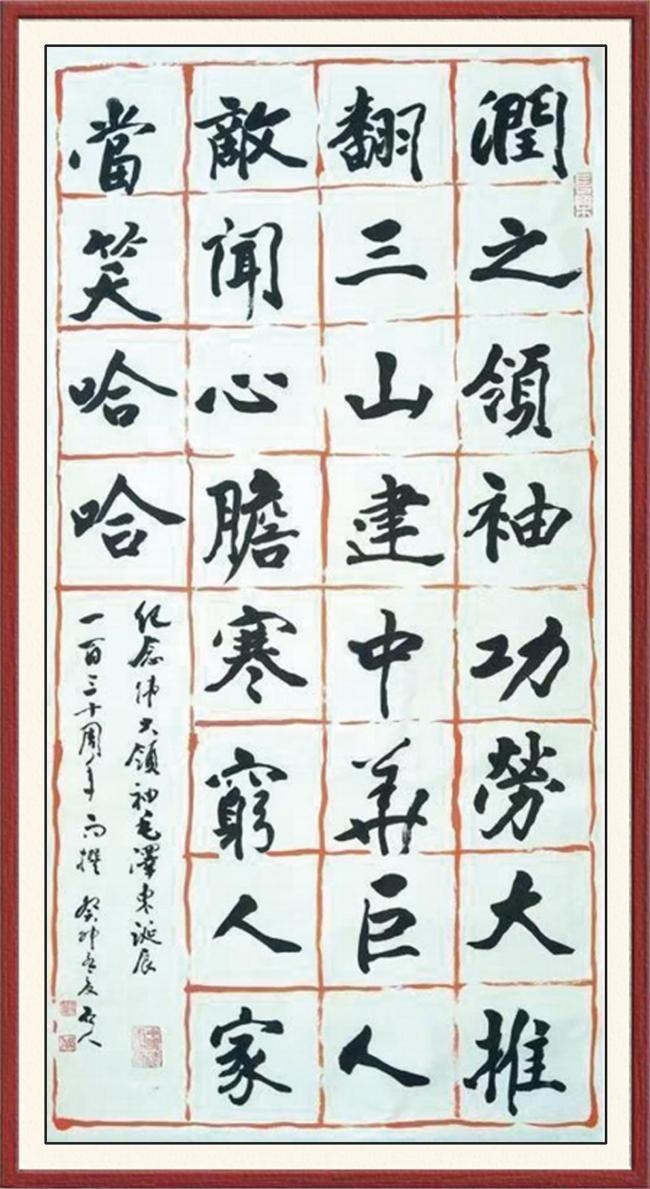 潤之領袖功勞大推
翻三山建中華巨人
敵闻心膽寒窮人家
當笑哈哈
纪念伟大領袖毛澤東诞辰
一百三十周年而撰 癸卯冬友石人